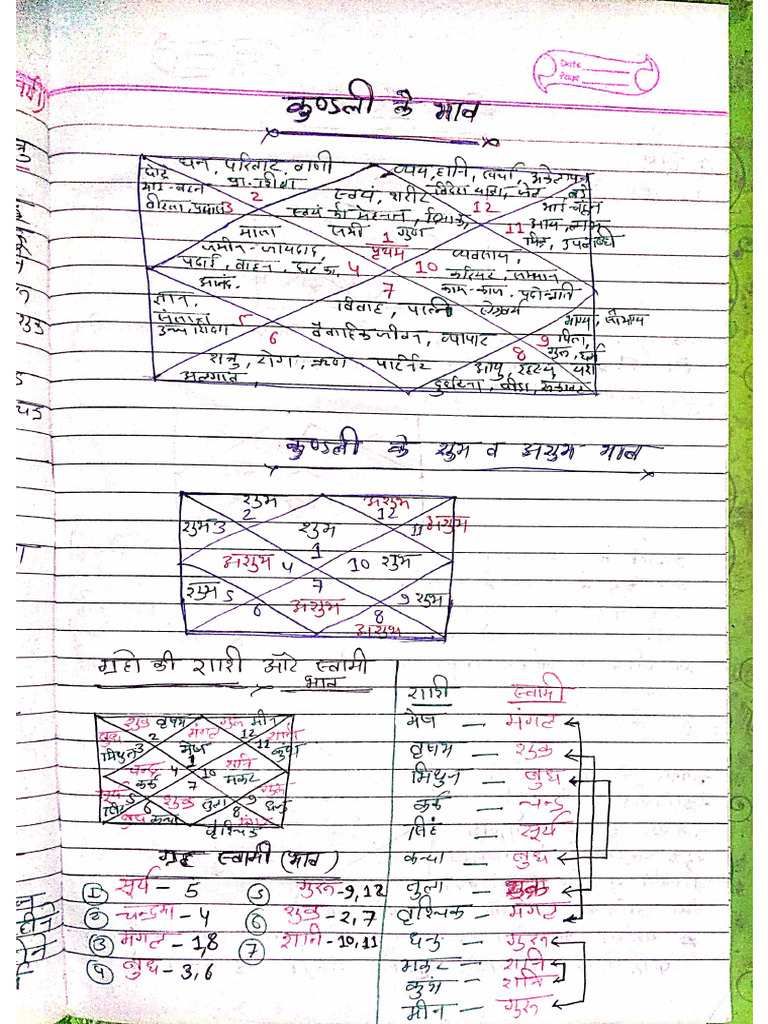 Date
Page
कुण्डली के भाव
धन, परिवार, वाणी
व्यय, हानि, खर्चा अकेलापन
छोटे
प्रा. शिक्षा
विदेश यात्रा, जेल
बड़े
भाई-बहन
2
स्वयं, शरीर
12
भाई-बहन
वीरता, पराक्रम 3
स्वयं की मेहनत, दिमाग,
11 आय, लाभ
माता
सभी गुण
मित्र, उपलब्धि
1
प्रथम
जमीन-जायदाद,
व्यवसाय,
पढाई, वाहन, घर का
4
10
करियर, सम्मान
आनंद.
7
काम-काज. प्रदोन्नति
ज्ञान,
विवाह, पत्नि
ऐश्वर्य
भाग्य, सौभाग्य
संतान
उच्च शिक्षा
5
6
वैवाहिक जीवन, व्यापार
9 पिता,
8
गुरु, धर्म
शत्रु, रोग, ऋण
पार्टनर
आयु, रहस्य,
अलगाव,
दुर्घटना, पीडा, रूकावट
कुण्डली के शुभ व अशुभ भाव
शुभ
अशुभ
2
12
शुभ 3
शुभ
11 अशुभ
1
अशुभ 4
10 शुभ
7
शुभ 5
9 शुभ
6
अशुभ
8
अशुभ
ग्रहो की राशी और स्वामी
भाव
शुक्र वृषभ
गुरू मीन
बुध
2
मंगल
12
शनि
मिथुन 3
मेष
11 कुंभ
1
चन्द्र 4
10 शनि
कर्क
7
मकर
सूर्य 5
शुक्र तुला
9 गुरू
सिंह
6
8
धनु
बुध कन्या
मंगल
वृश्चिक
राशी स्वामी
मेष – मंगल
वृषभ – शुक्र
मिथुन – बुध
कर्क – चन्द्र
सिंह – सूर्य
कन्या – बुध
तुला – शुक्र
वृश्चिक – मंगल
धनु – गुरू
मकर – शनि
कुंभ – शनि
मीन – गुरू
ग्रह स्वामी (भाव)
① सूर्य – 5
② चन्द्रमा – 4
③ मंगल – 1,8
④ बुध – 3, 6
⑤ गुरू – 9, 12
⑥ शुक्र – 2, 7
⑦ शनि – 10, 11